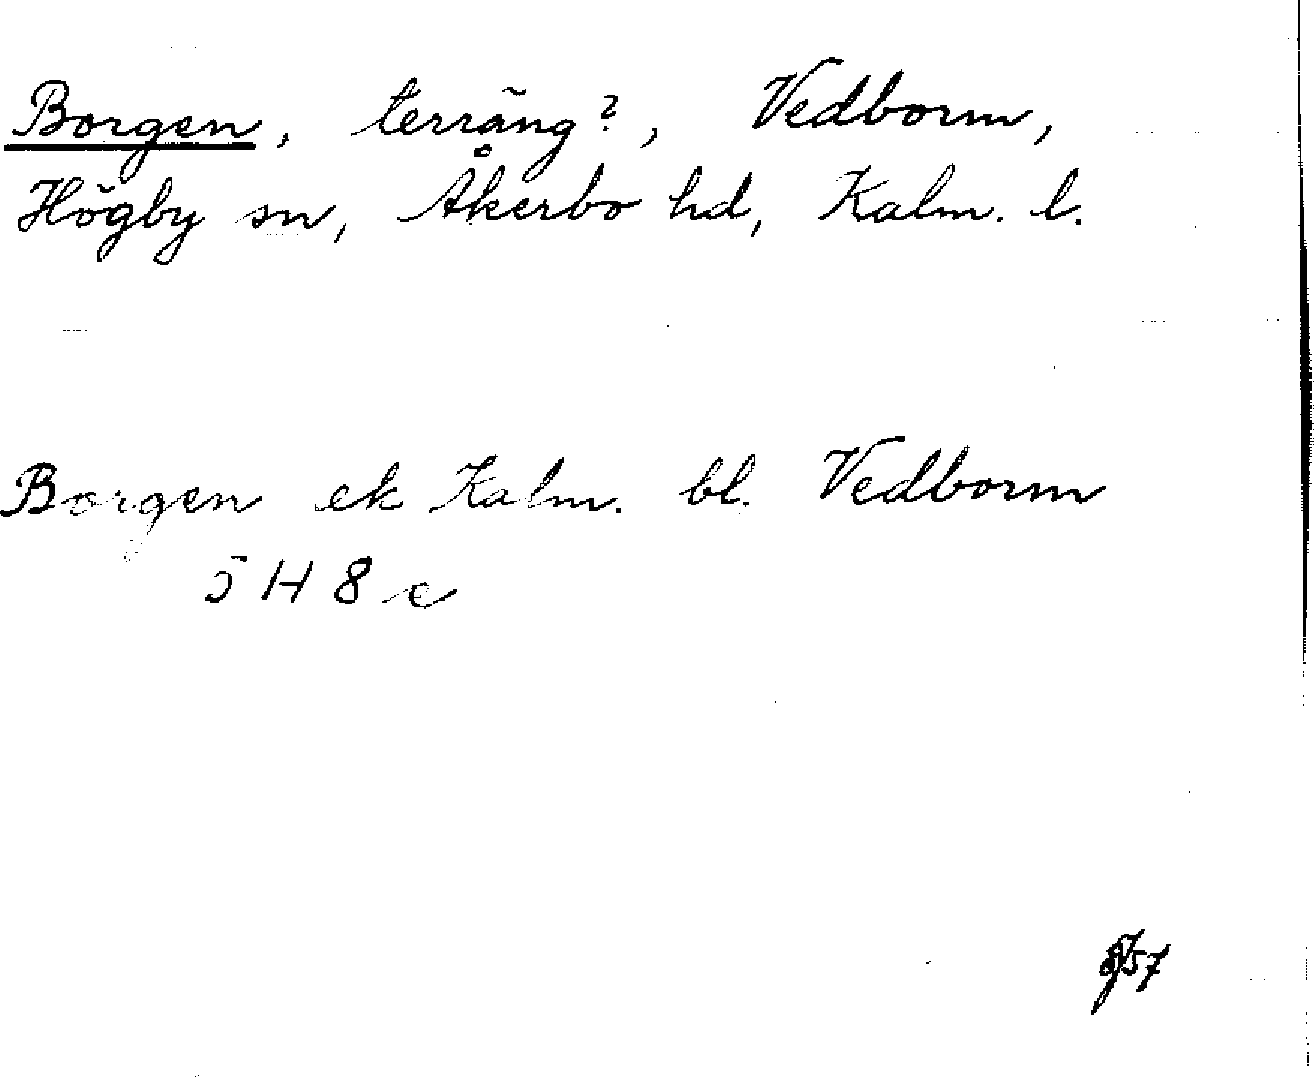 Borgen, terräng?, Vedborm,
Högby sn, Åkerbo hd, Kalm. l.
Borgen ek Kalm. bl. Vedborm
5 H 8 c